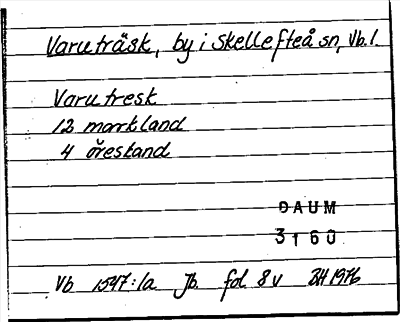 Varuträsk, by i Skellefteå sn, Vb. l.
Varutresk
12 markland
4 öresland
DAUM
3160
Vb 1547:1a Jb. fol 8v BH 1976